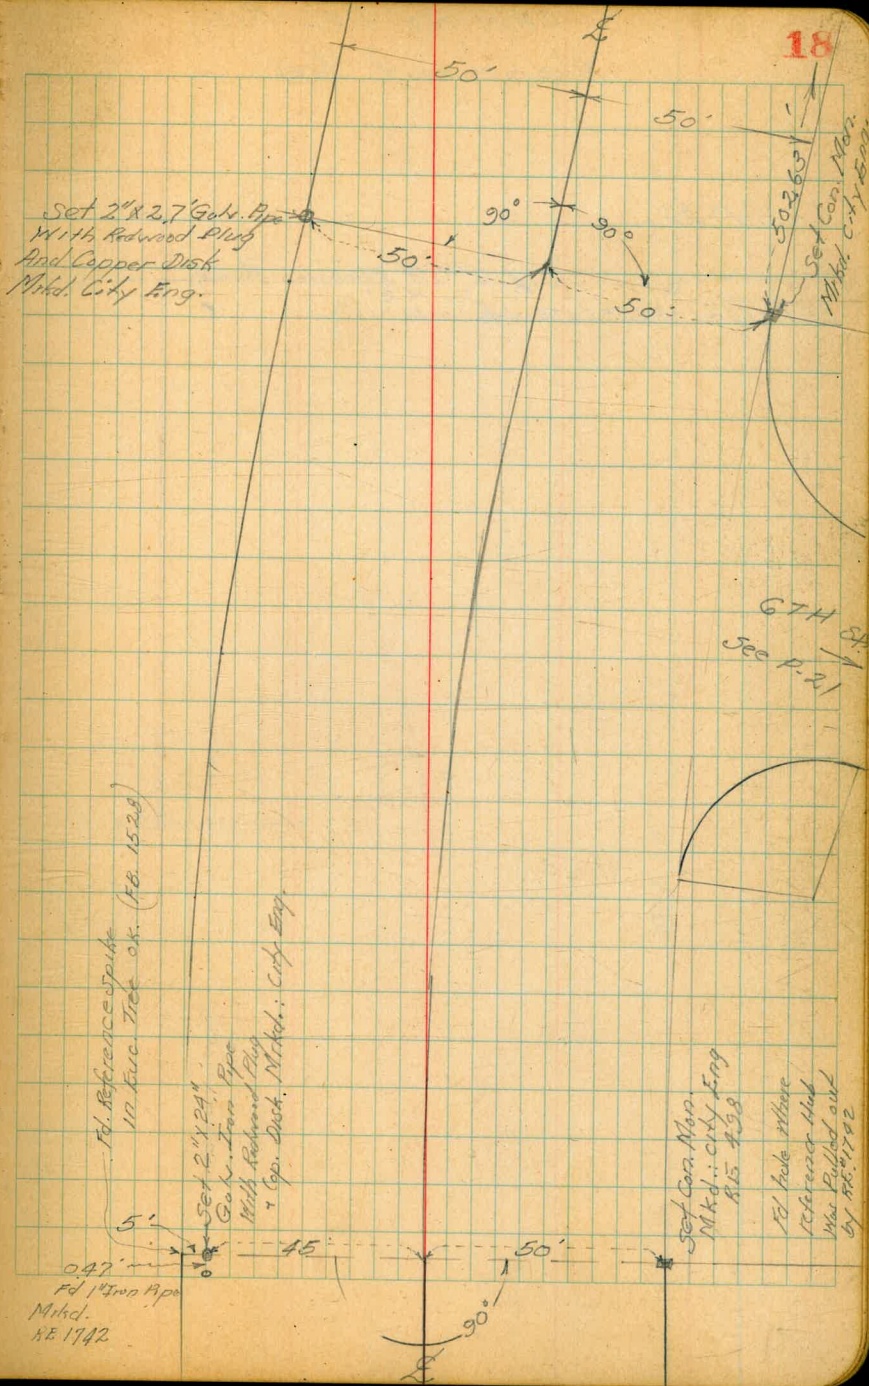 18
50'
50'
Set 2" X 2.7' Galv. Pipe
With Redwood Plug
And Copper Disk
Mrkd. City Eng.
90°
90°
50'
50'
Set Con. Mon.
Mrkd. City Eng.
6TH
St.
See P. 21
Fd. Reference Spike
in Euc. Tree OK. (FB. 1528)
Set 2" X 24"
Galv. Iron Pipe
With Redwood Plug
+ Cop. Disk. Mrkd.: City Eng.
Set Con. Mon.
Mkd.: City Eng
RE 438
Fd hole Where
reference Hub
Was Pulled out
by RE. 1742
5'
45
50'
0.47'
Fd 1" Iron Pipe
Mrkd.
RE 1742
90°